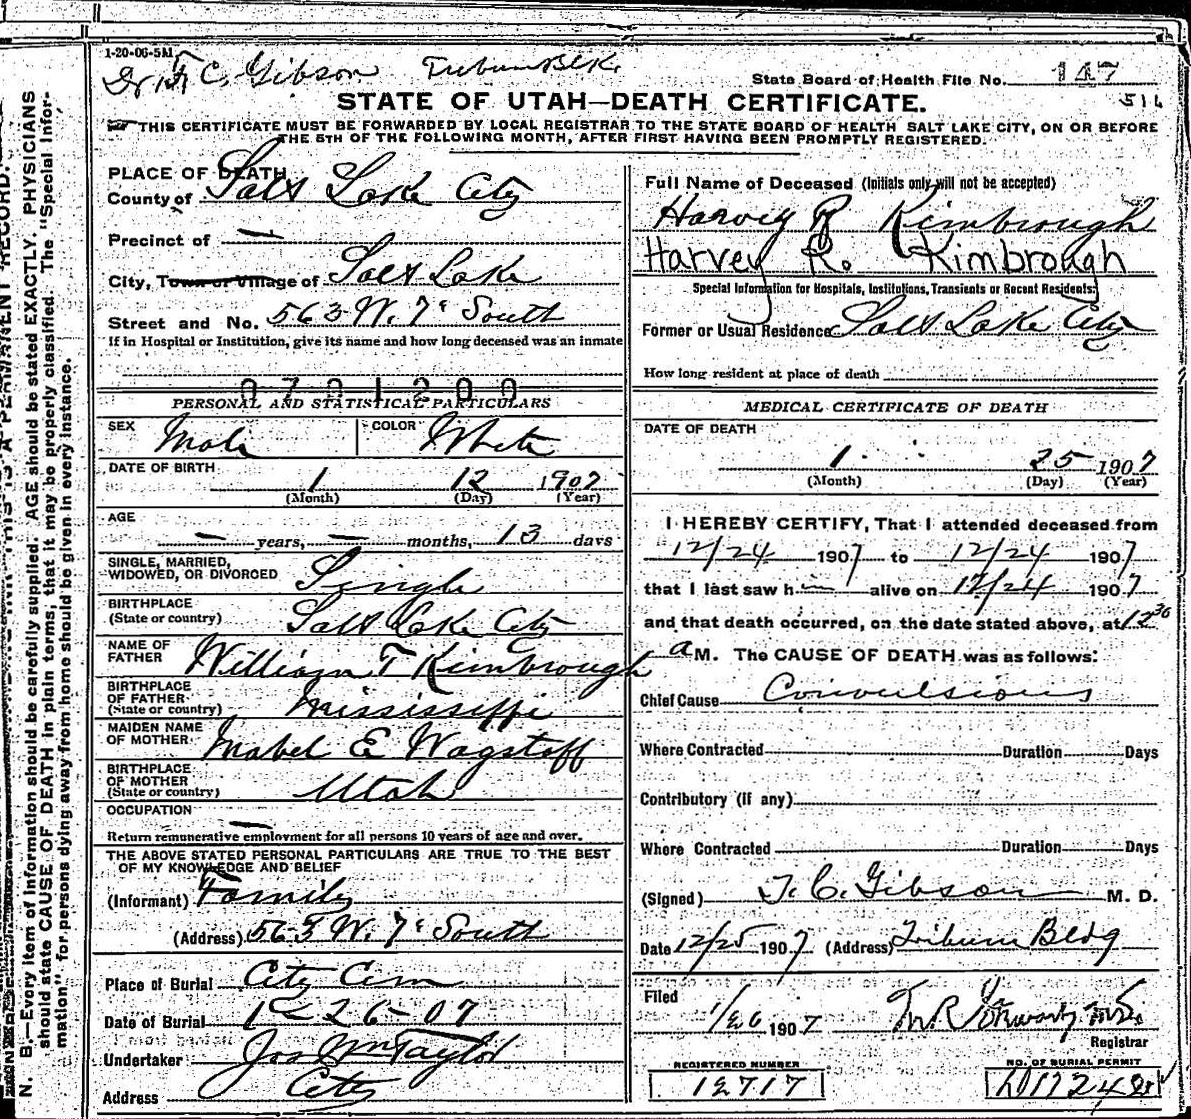 1-20-06-5M
Dr. F. C. Gibson Tribune Blk.
State Board of Health File No. 147
516
STATE OF UTAH—DEATH CERTIFICATE.
THIS CERTIFICATE MUST BE FORWARDED BY LOCAL REGISTRAR TO THE STATE BOARD OF HEALTH SALT LAKE CITY, ON OR BEFORE
THE 5TH OF THE FOLLOWING MONTH, AFTER FIRST HAVING BEEN PROMPTLY REGISTERED.
PLACE OF DEATH
County of Salt Lake City
Precinct of —
City, Town or Village of Salt Lake
Street and No. 563 W. 7" South
If in Hospital or Institution, give its name and how long deceased was an inmate
0701200
PERSONAL AND STATISTICAL PARTICULARS
SEX Male COLOR White
DATE OF BIRTH
1 12 1907
(Month) (Day) (Year)
AGE
— years, — months, 13 days
SINGLE, MARRIED,
WIDOWED, OR DIVORCED Single
BIRTHPLACE
(State or country) Salt Lake City
NAME OF
FATHER William T Kimbrough
BIRTHPLACE
OF FATHER
(State or country) Mississippi
MAIDEN NAME
OF MOTHER Mabel E Wagstaff
BIRTHPLACE
OF MOTHER
(State or country) Utah
OCCUPATION —
Return remunerative employment for all persons 10 years of age and over.
THE ABOVE STATED PERSONAL PARTICULARS ARE TRUE TO THE BEST
OF MY KNOWLEDGE AND BELIEF
(Informant) Family
(Address) 563 W. 7" South
Place of Burial City Cem
Date of Burial 1-26-07
Undertaker Jos Wm Taylor
Address City
Full Name of Deceased (Initials only will not be accepted)
Harvey R Kimbrough
Harvey R. Kimbrough
Special Information for Hospitals, Institutions, Transients or Recent Residents:
Former or Usual Residence Salt Lake City
How long resident at place of death
MEDICAL CERTIFICATE OF DEATH
DATE OF DEATH
1 25 1907
(Month) (Day) (Year)
I HEREBY CERTIFY, That I attended deceased from
12/24 1907 to 12/24 1907
that I last saw h im alive on 12/24 1907
and that death occurred, on the date stated above, at 12 30
a M. The CAUSE OF DEATH was as follows:
Chief Cause Convulsions
Where Contracted Duration Days
Contributory (if any)
Where Contracted Duration Days
(Signed) F. C. Gibson M. D.
Date 12/25 1907 (Address) Tribune Bldg
Filed
1/26 1907
Registrar
REGISTERED NUMBER
12717
NO. OF BURIAL PERMIT
N. B.—Every item of information should be carefully supplied. AGE should be stated EXACTLY. PHYSICIANS
should state CAUSE OF DEATH in plain terms, that it may be properly classified. The "Special Infor-
mation" for persons dying away from home should be given in every instance.